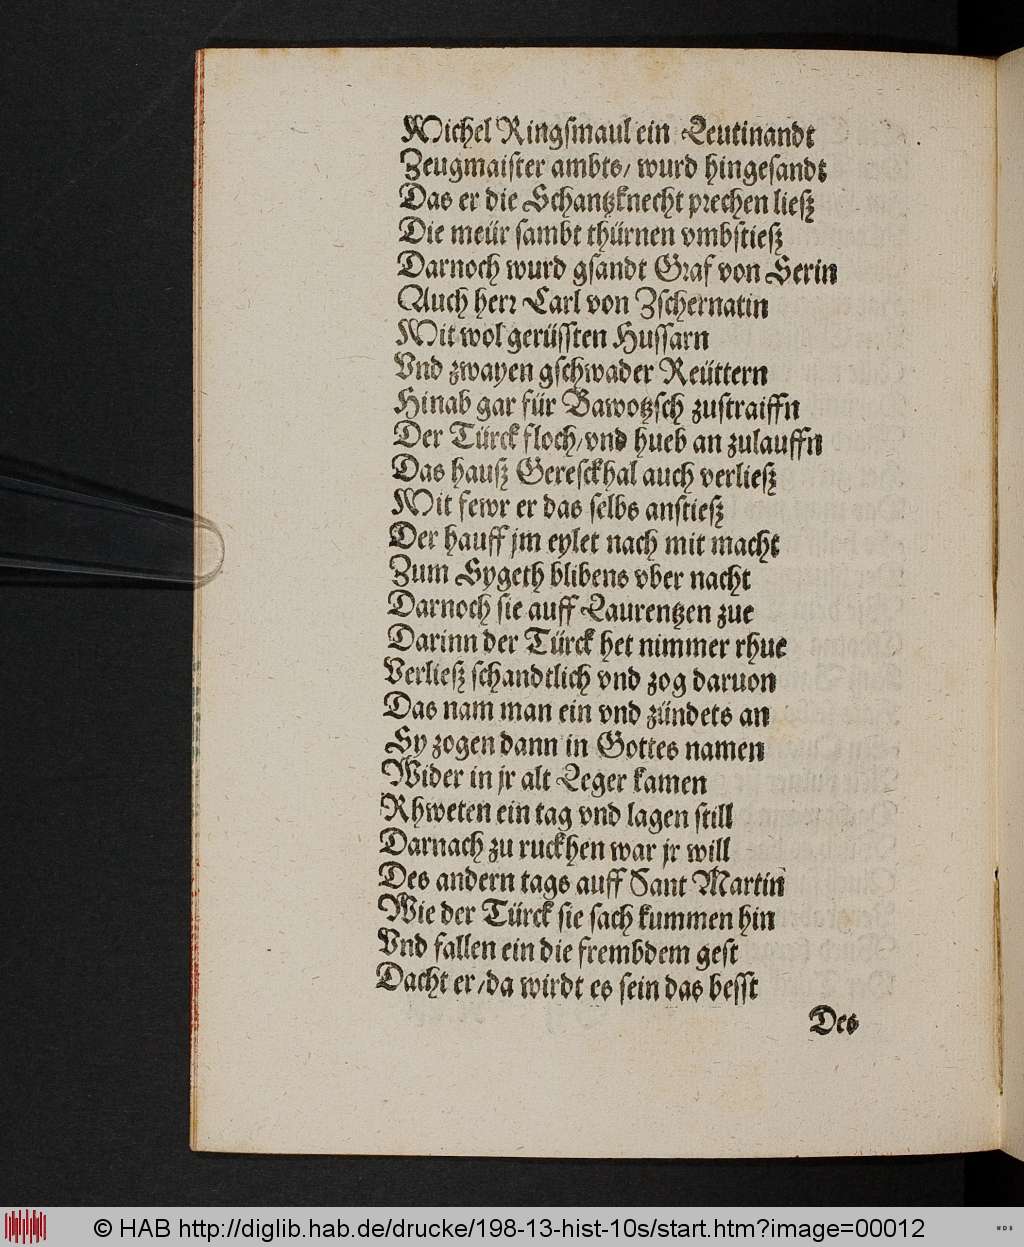 Michel Ringsmaul ein Leutinandt
Zeugmaister ambts/ wurd hingesandt
Das er die Schantzknecht prechen ließ
Die meür sambt thürnen vmbstieß
Darnoch wurd gsandt Graf von Serin
Auch herr Carl von Zschernatin
Mit wol gerüssten Hussarn
Vnd zwayen gschwader Reüttern
Hinab gar für Bawotzsch zustraiffn
Der Türck floch/vnd hueb an zulauffn
Das hauß Geresckhal auch verließ
Mit fewr er das selbs anstieß
Der hauff jm eylet nach mit macht
Zum Sygeth blibens vber nacht
Darnoch sie auff Laurentzen zue
Darinn der Türck het nimmer rhue
Verließ schandtlich vnd zog daruon
Das nam man ein vnd zündets an
Sy zogen dann in Gottes namen
Wider in jr alt Leger kamen
Rhweten ein tag vnd lagen still
Darnach zu ruckhen war jr will
Des andern tags auff Sant Martin
Wie der Türck sie sach kummen hin
Vnd fallen ein die frembdem gest
Dacht er/da wirdt es sein das besst
Des
© HAB http://diglib.hab.de/drucke/198-13-hist-10s/start.htm?image=00012